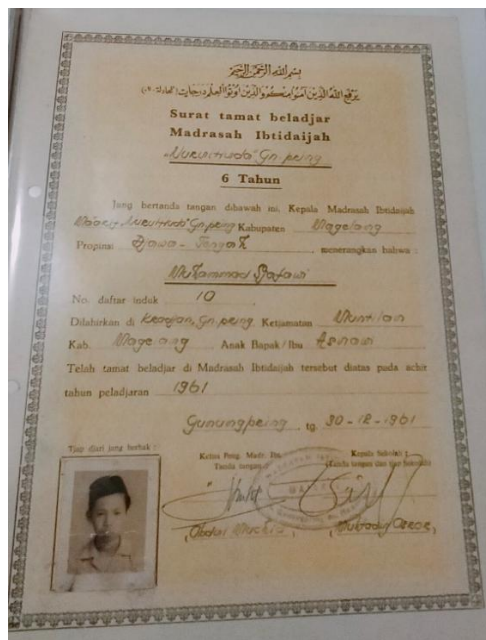 بسم الله الرحمن الرحيم
يرفع الله الذين آمنوا منكم والذين اوتوا العلم درجات
Surat tamat beladjar
Madrasah Ibtidaijah
Gn. peing
6 Tahun
Jang bertanda tangan dibawah ini, Kepala Madrasah Ibtidaijah
Gn. peing Kabupaten Magelang
Propinsi Djawa - Tengah, menerangkan bahwa :
Muhammad
No. daftar induk 10
Dilahirkan di Gn. peing Ketjamatan Muntilan
Kab. Magelang Anak Bapak/Ibu Asnawi
Telah tamat beladjar di Madrasah Ibtidaijah tersebut diatas pada achir
tahun peladjaran 1961
Gunungpeing tg. 30-12-1961
Tjap djari jang berhak :
Ketua Peng. Madr. Ibt.
Tanda tangan
Kepala Sekolah :
(Tanda tangan dan tjap Sekolah)